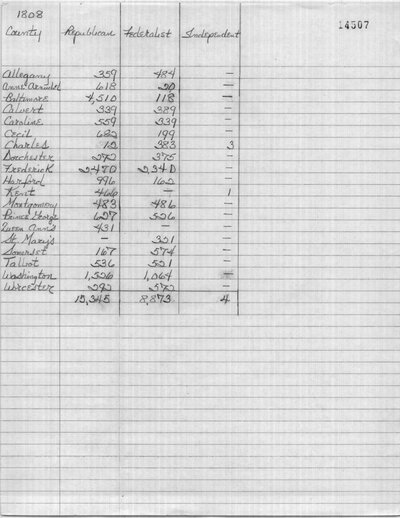 1808
14507
County Republican Federalist Independent
Allegany 359 484 –
Anne Arundel 618 20 –
Baltimore 4,510 118 –
Calvert 339 389 –
Caroline 559 339 –
Cecil 682 199 –
Charles 12 383 3
Dorchester 292 375 –
Frederick 2470 2340 –
Harford 996 162 –
Kent 466 – 1
Montgomery 483 486 –
Prince George 627 526 –
Queen Anns 431 – –
St. Mary's – 321 –
Somerset 167 574 –
Talbot 536 521 –
Washington 1,526 1,064 –
Worcester 292 572 –
15,345 8,873 4